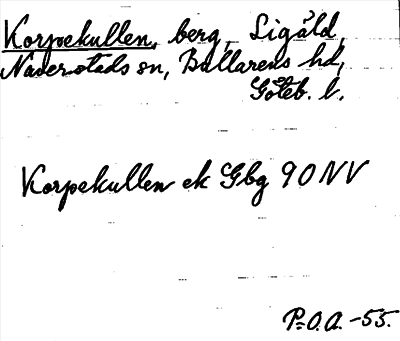 Korpekullen, berg, Ligåld,
Naverstads sn, Bullarens hd,
Göteb. l.
Korpekullen ek Gbg 90 NV
P-O.A. -55.